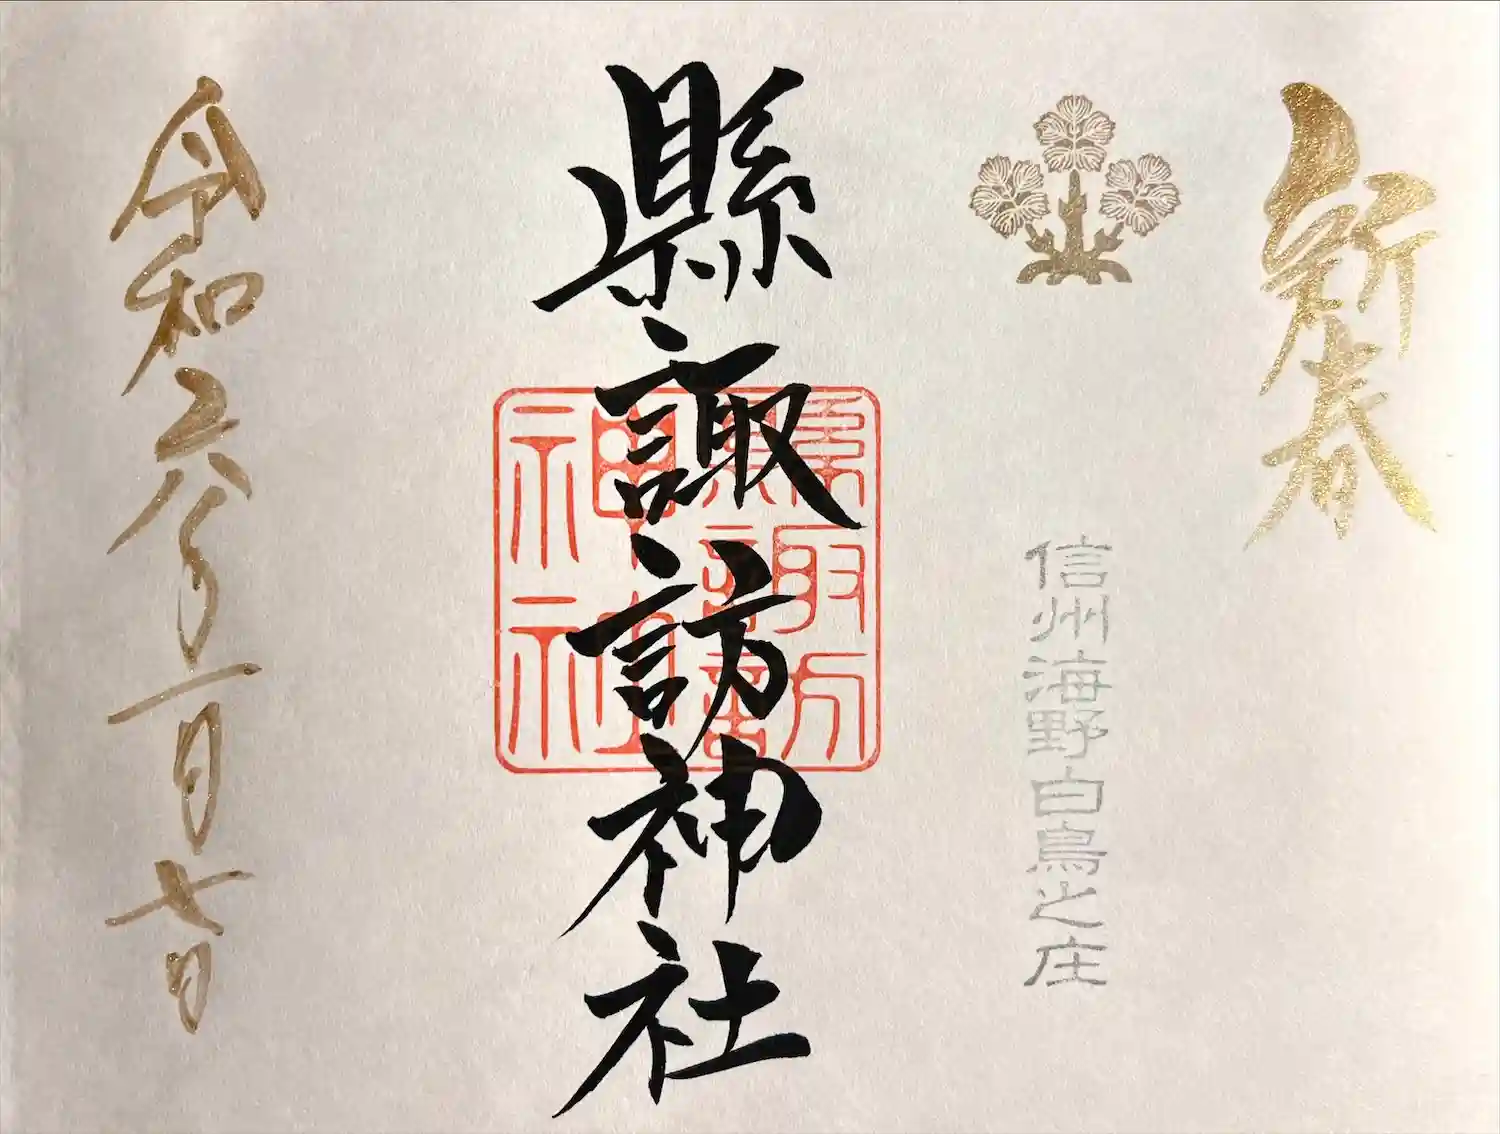 新春
信州海野白鳥之庄
縣諏訪神社
縣諏訪
神社
令和六年一月七日